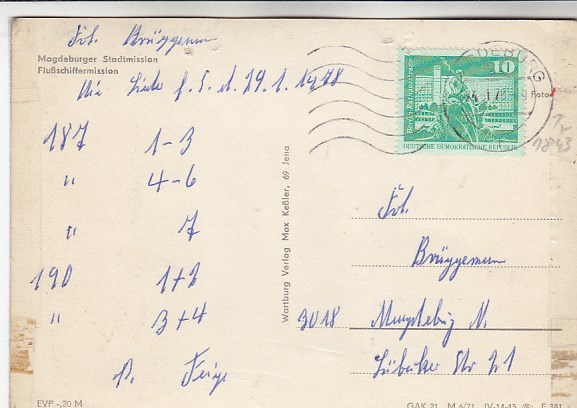 Frl. Brüggemann
Magdeburger Stadtmission
Flußschiffermission
Die Lieder f. S. d. 29.1.1978
187 1-3
" 4-6
" 7
190 1+2
" 3+4
P. Feige
EVP -,20 M
Wartburg Verlag Max Keßler, 69 Jena
10
Berlin, Rathausstraße
DEUTSCHE DEMOKRATISCHE REPUBLIK
DEBURG
Foto
1843
Frl.
Brüggemann
3018 Magdeburg N.
Lübecker Str 21
GAK 21 M 6/71 IV-14-45 F 381